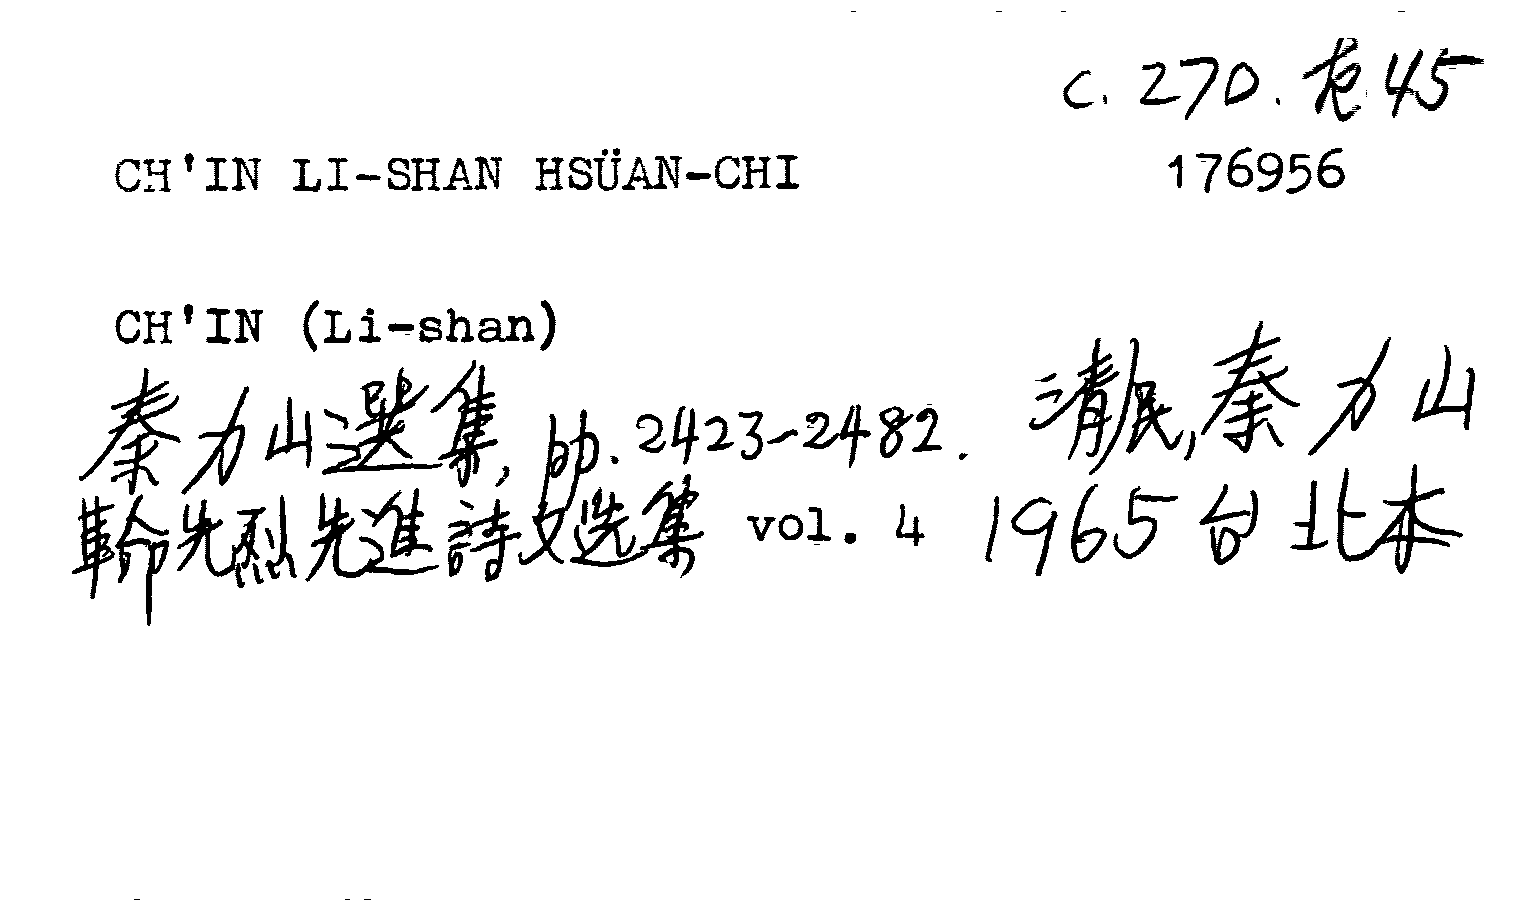 c. 270. 45
CH'IN LI-SHAN HSÜAN-CHI 176956
CH'IN (Li-shan)
秦力山選集, pp. 2423-2482. 清民, 秦力山
革命先烈先進詩文选集 vol. 4 1965 台北本